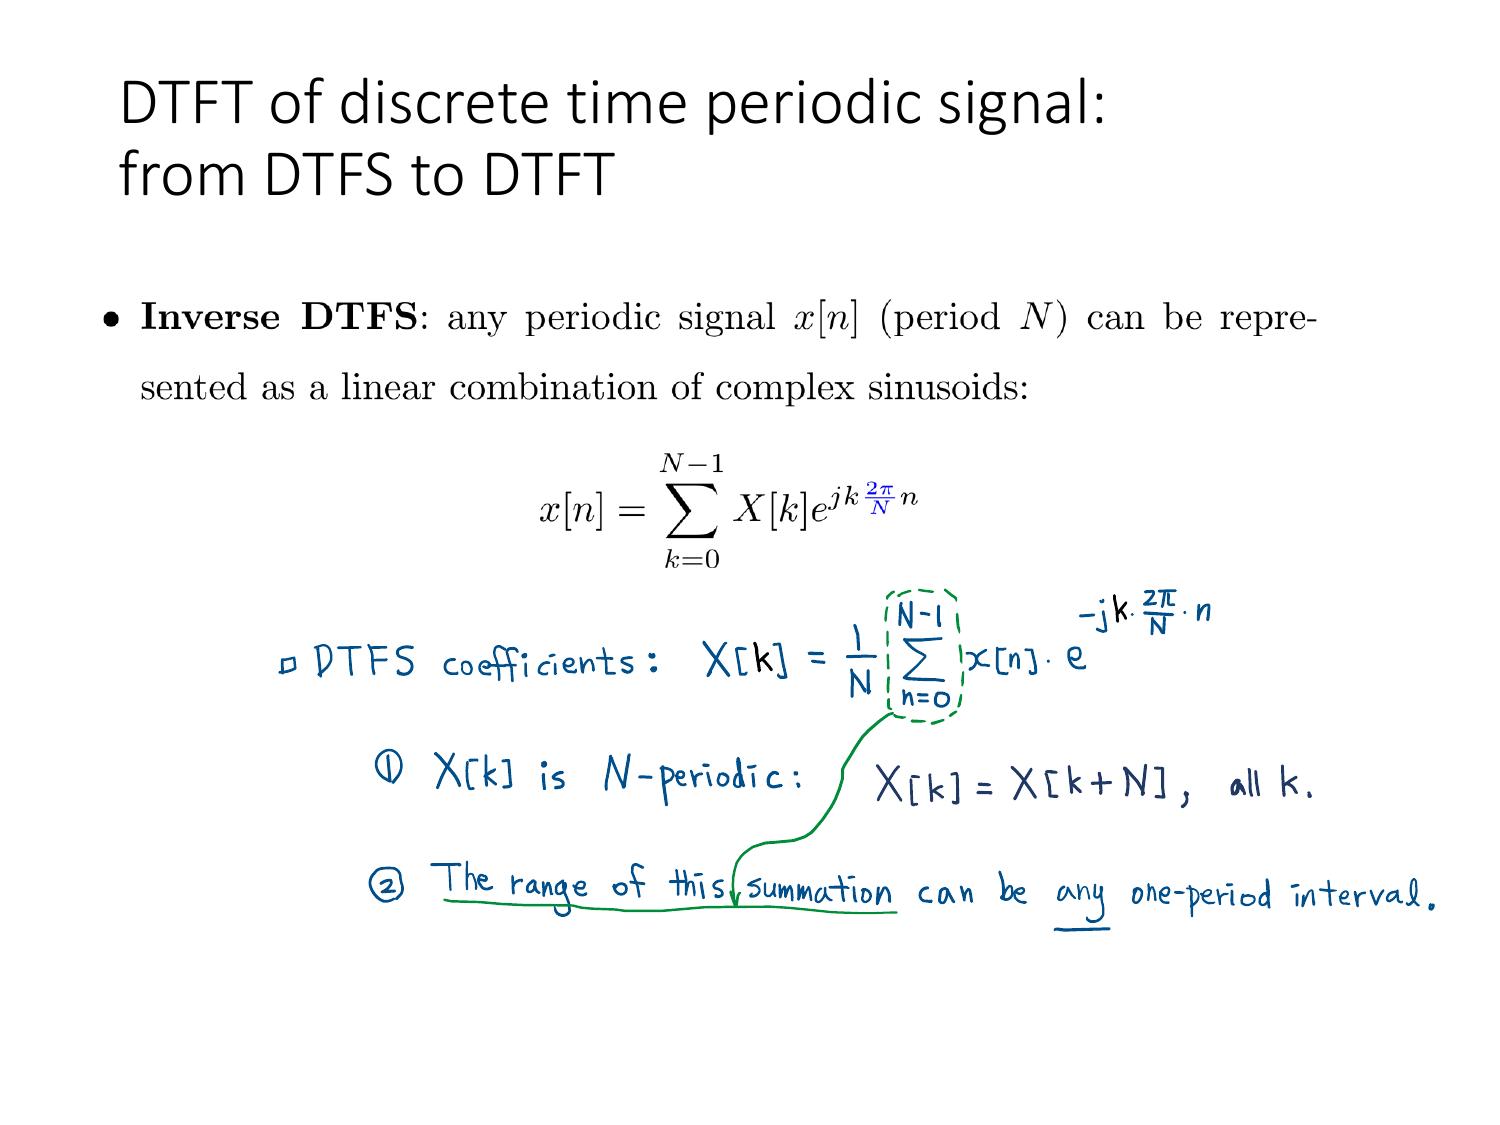 DTFT of discrete time periodic signal:
from DTFS to DTFT
• Inverse DTFS: any periodic signal x[n] (period N) can be repre-
sented as a linear combination of complex sinusoids:
x[n] = \sum_{k=0}^{N-1} X[k]e^{jk\frac{2π}{N}n}
▫ DTFS coefficients: X[k] = \frac{1}{N} \sum_{n=0}^{N-1} x[n]· e^{-jk·\frac{2π}{N}·n}
① X[k] is N-periodic: X[k] = X[k+N], all k.
② The range of this summation can be any one-period interval.